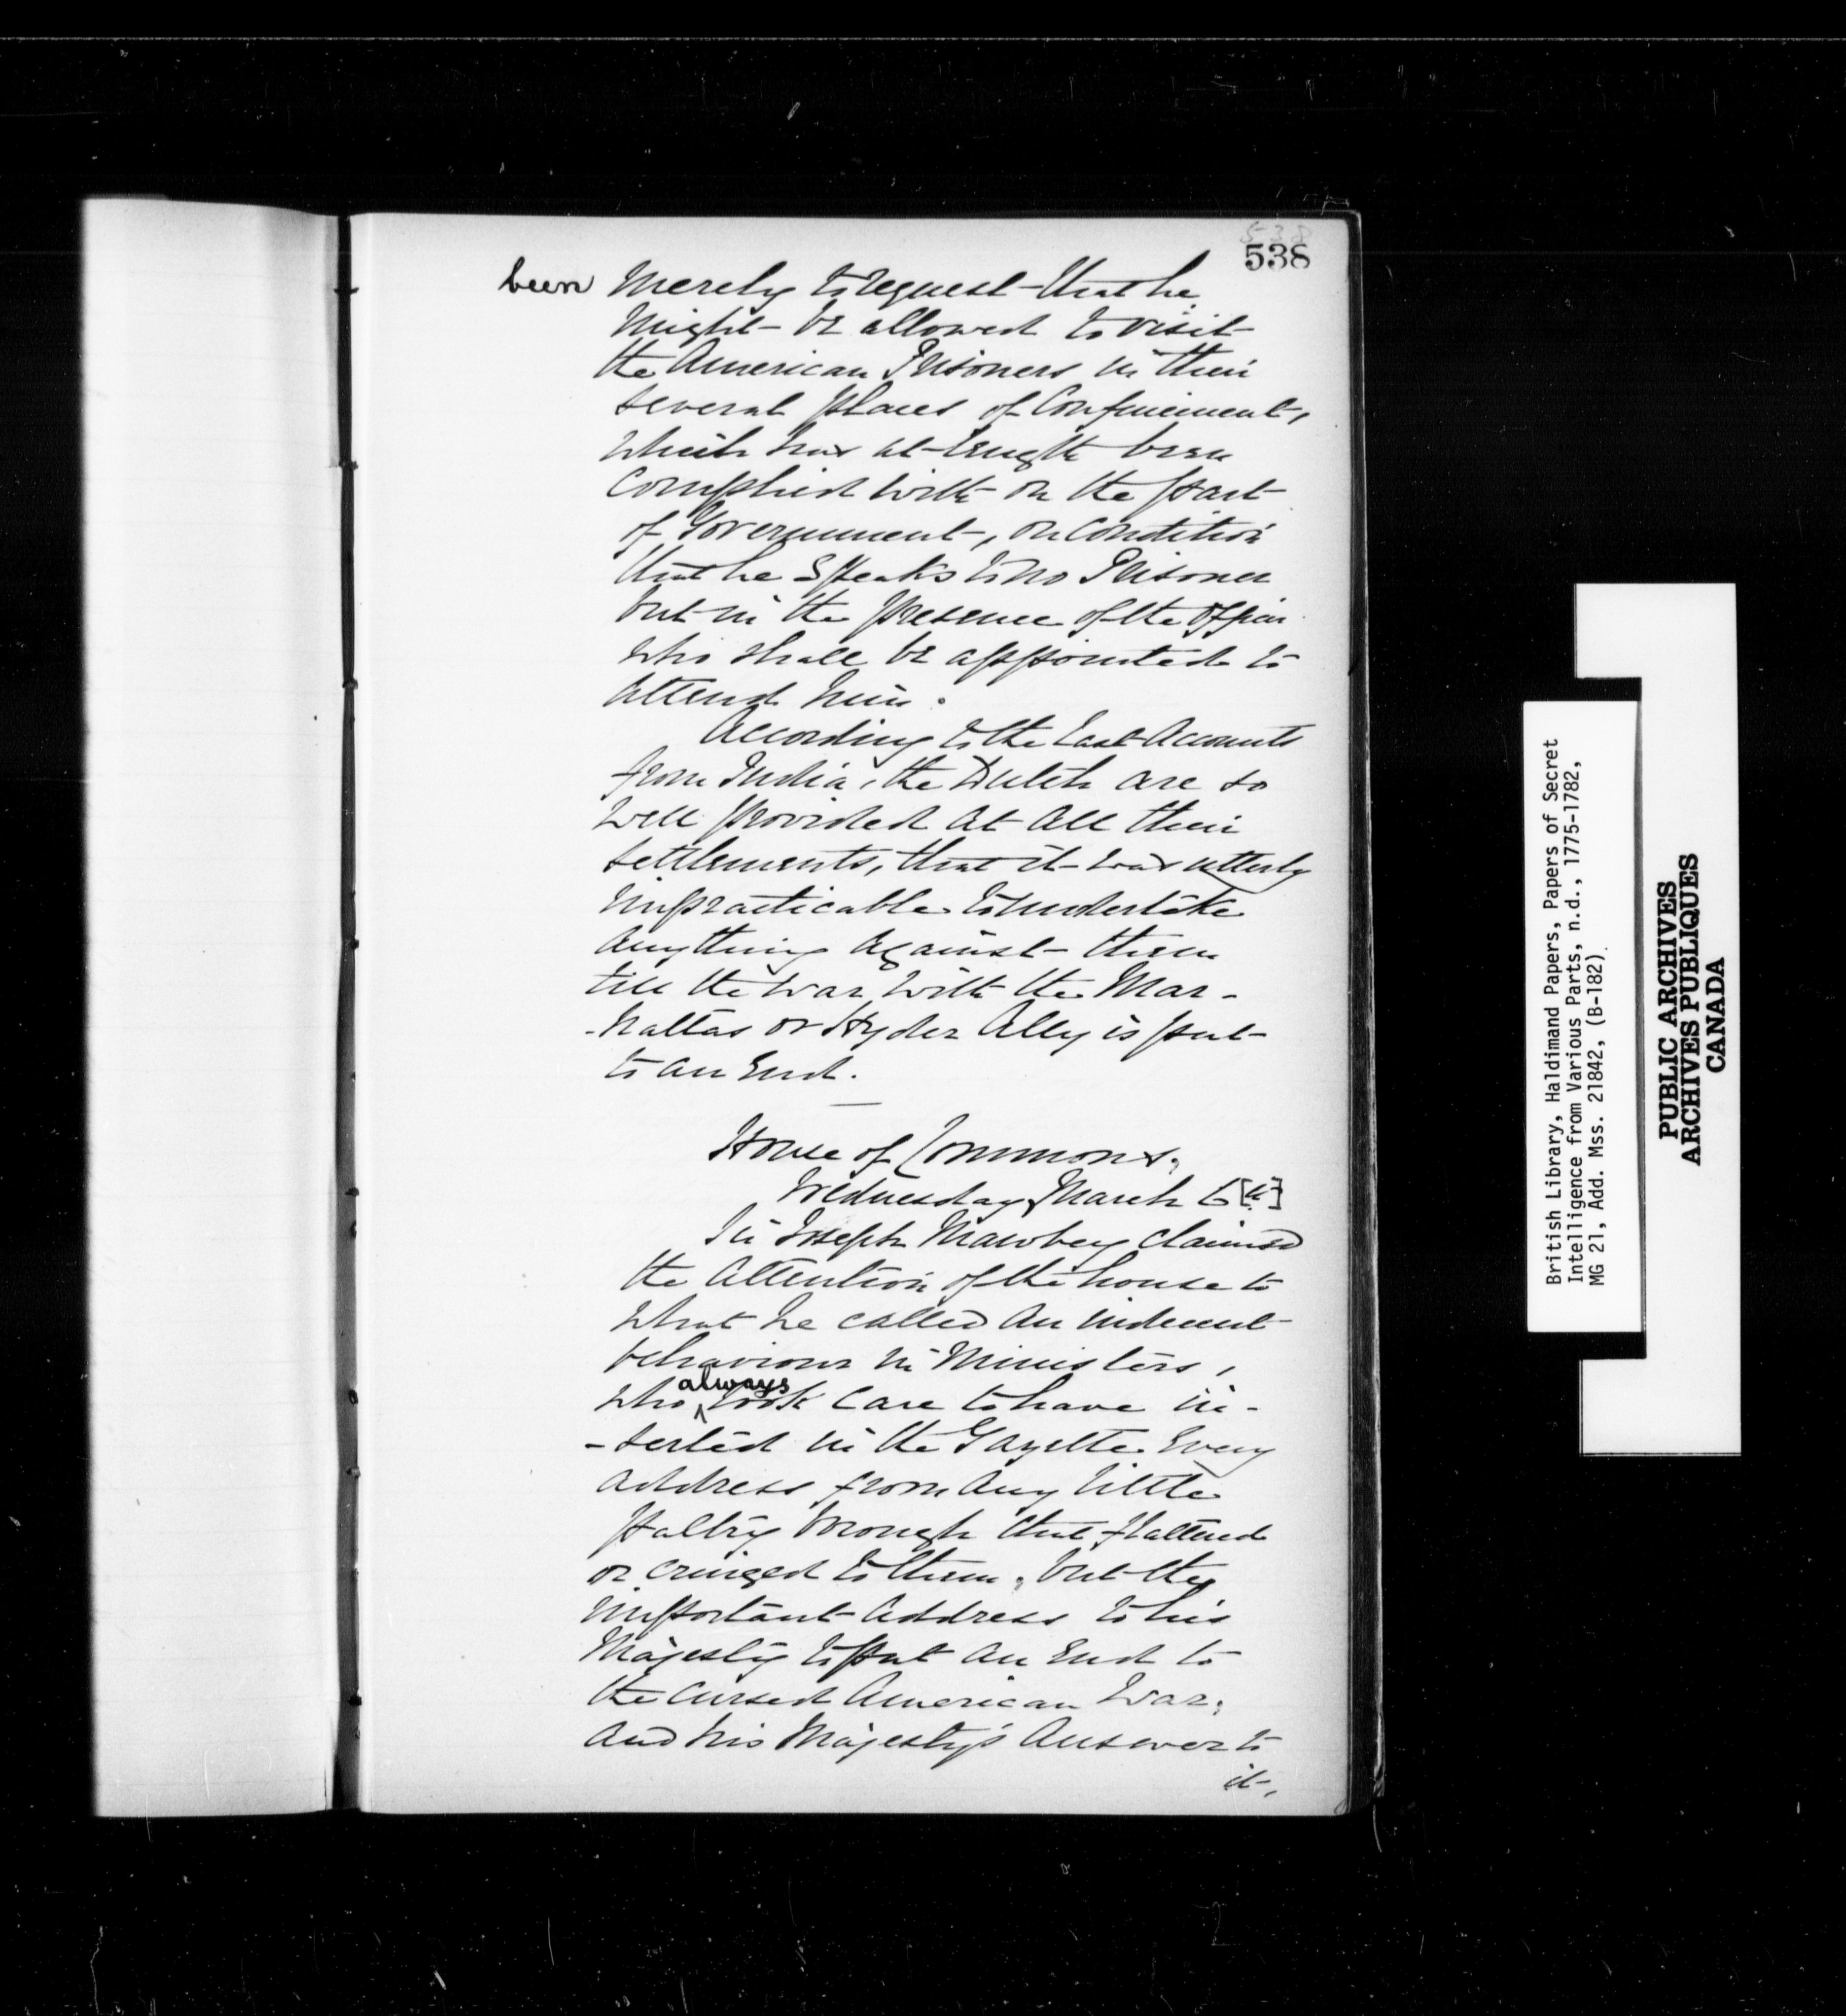 538
538
been Merely to request that he
Might be allowed to visit
the American Prisoners in their
several places of Confinement,
which has at length been
Complied with on the part
of Government, on Condition
that he Speaks to no Prisoner
but in the presence of the Officer
who shall be appointed to
Attend him.
According to the Last Accounts
from India, the Dutch are so
well provided at all their
settlements, that it was utterly
impracticable to undertake
Anything against them
till the War with the Mar-
-hattas or Hyder Ally is put
to an End.
House of Commons,
Wednesday March 6[th]
Sir Joseph Mawbey claimed
the Attention of the house to
what he called an indecent
behaviour in Ministers,
who always took Care to have in-
-serted in the Gazette Every
address from any little
paltry borough that flattered
or cringed to them, but the
important Address to his
Majesty to put an End to
the cursed American War,
and his Majesty's Answer to
it,
British Library, Haldimand Papers, Papers of Secret
Intelligence from Various Parts, n.d., 1775-1782,
MG 21, Add. Mss. 21842, (B-182)
PUBLIC ARCHIVES
ARCHIVES PUBLIQUES
CANADA